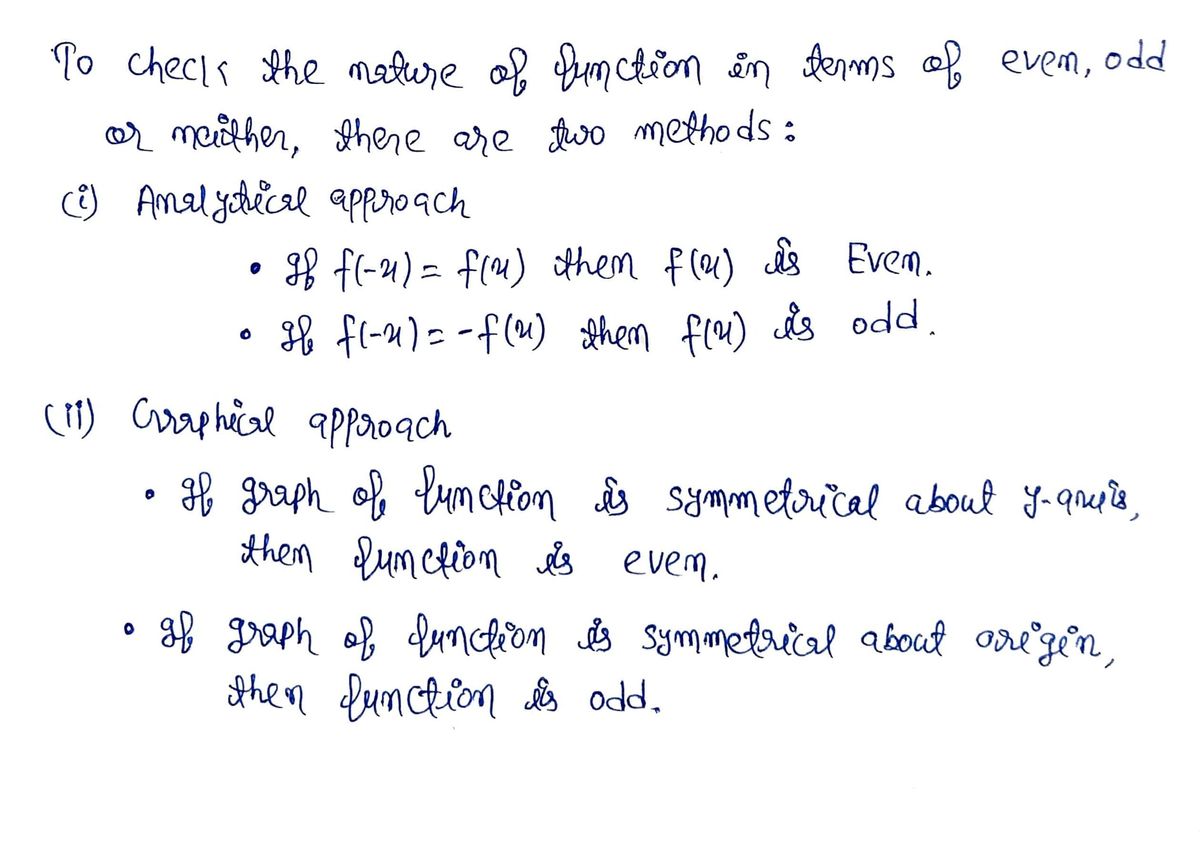 To check the nature of function in terms of even, odd
or neither, there are two methods :
(i) Analytical approach
• If f(-x) = f(x) then f(x) is Even.
• If f(-x) = -f(x) then f(x) is odd.
(ii) Graphical approach
• If graph of function is symmetrical about y-axis,
then function is even.
• If graph of function is symmetrical about origin,
then function is odd.